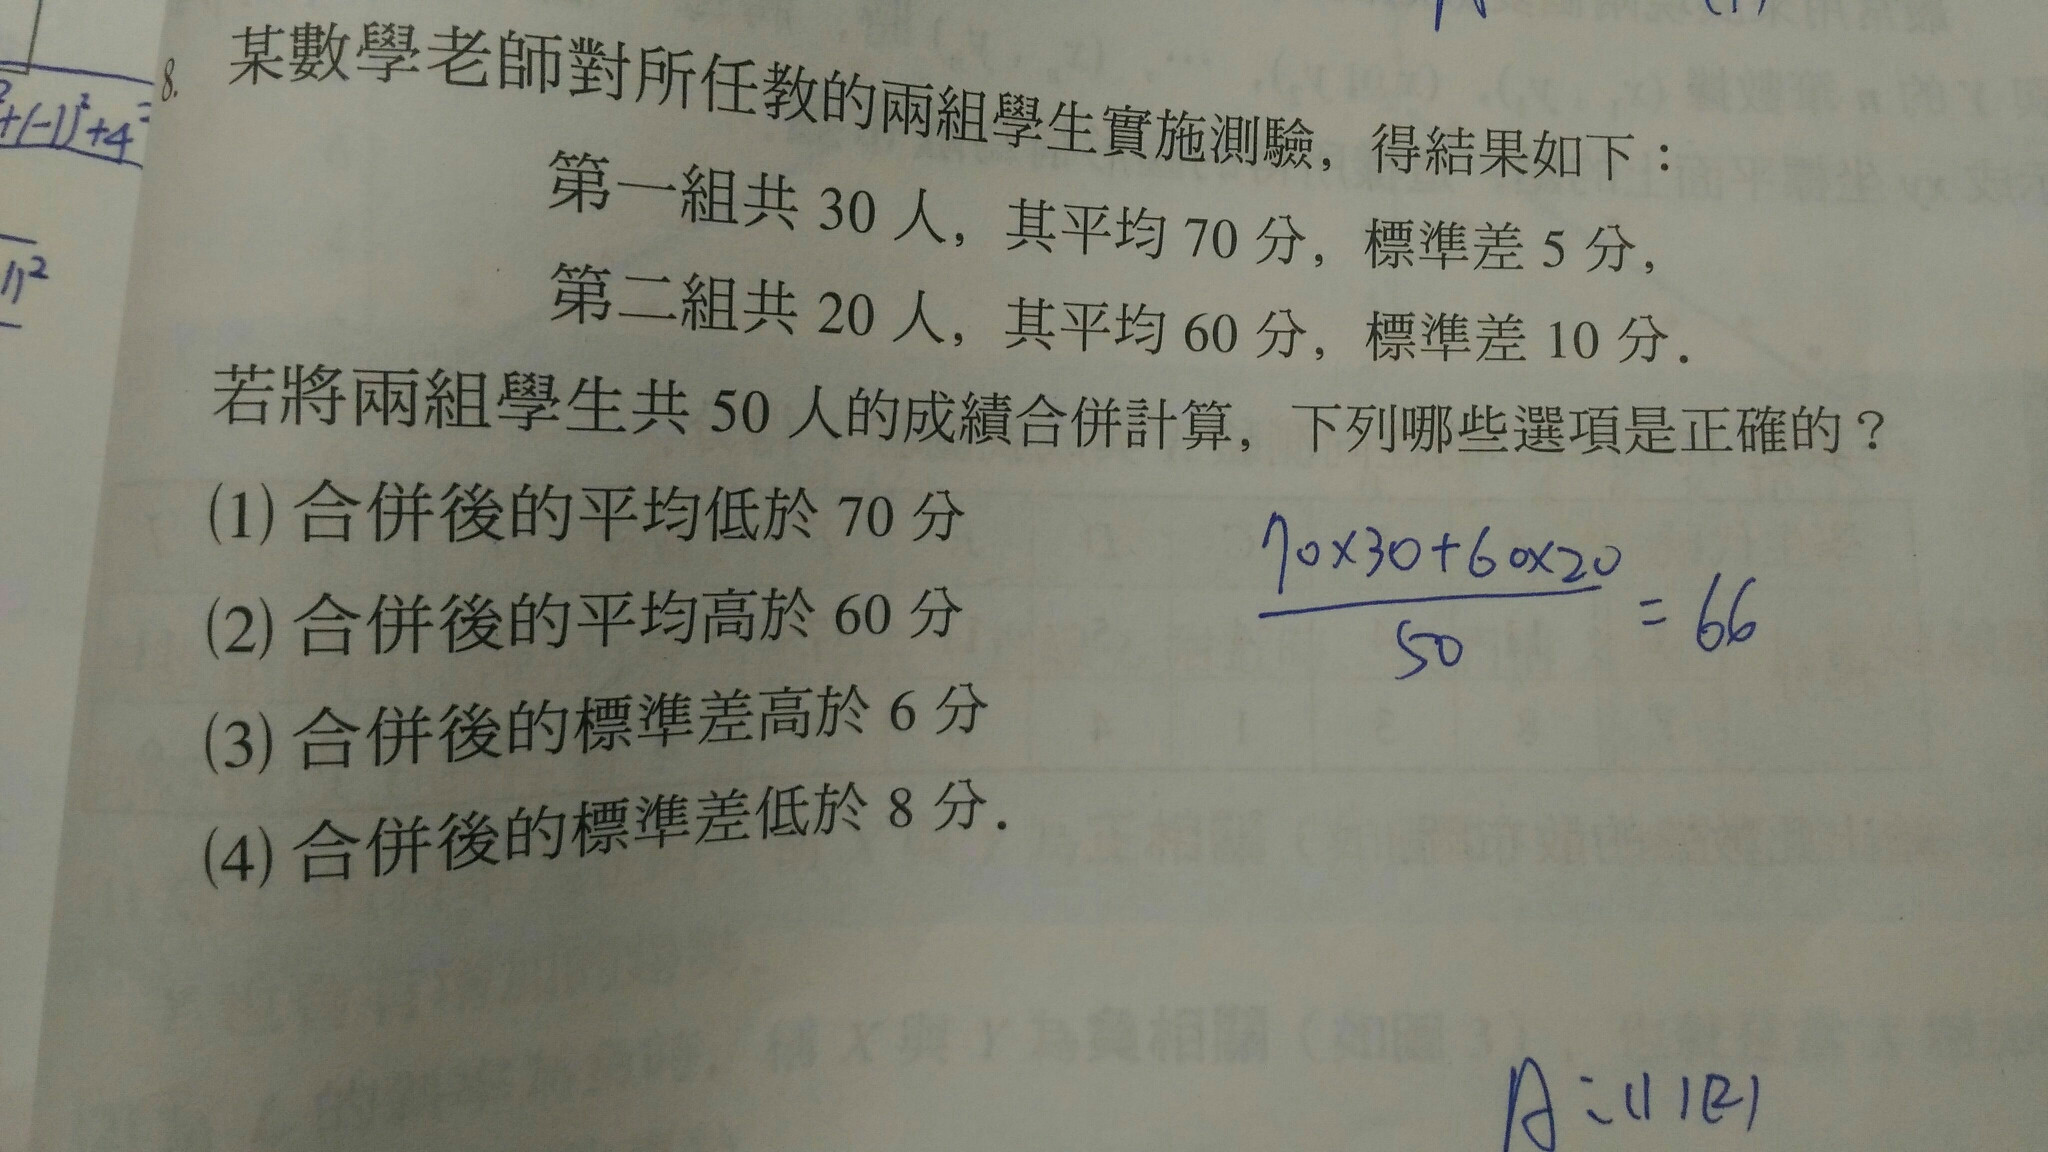 8. 某數學老師對所任教的兩組學生實施測驗，得結果如下：
第一組共 30 人，其平均 70 分，標準差 5 分，
第二組共 20 人，其平均 60 分，標準差 10 分．
若將兩組學生共 50 人的成績合併計算，下列哪些選項是正確的？
(1) 合併後的平均低於 70 分
(2) 合併後的平均高於 60 分
(3) 合併後的標準差高於 6 分
(4) 合併後的標準差低於 8 分．
70×30+60×20
50
= 66
+(-1)²+4
A:(1)(2)